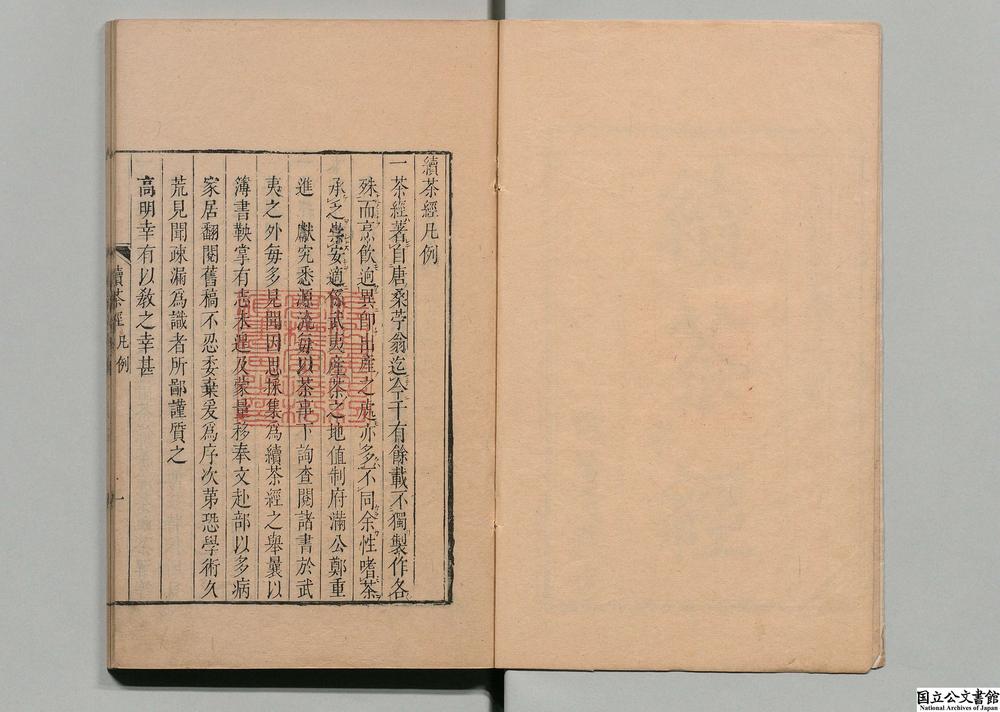 續茶經凡例
一茶經著自唐桑苧翁迄今千有餘載不獨製作各
殊而烹飲逈異即出產之處亦多不同余性嗜茶
承乏崇安適係武夷產茶之地值制府滿公鄭重
進　獻究悉源流每以茶事下詢查閱諸書於武
夷之外每多見聞因思採集爲續茶經之舉曩以
簿書鞅掌有志未遑及蒙量移奉文赴部以多病
家居翻閱舊稿不忍委棄爰爲序次第恐學術久
荒見聞疎漏爲識者所鄙謹質之
高明幸有以教之幸甚
續茶經　凡例
一
国立公文書館
National Archives of Japan